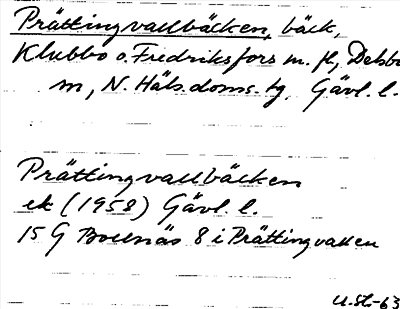 Prättingvallbäcken, bäck,
Klubbo o. Fredriksfors m. fl., Delsbo
m, N. Häls. doms. tg, Gävl. l.
Prättingvallbäcken
ek (1958) Gävl. l.
15 G Bollnäs 8 i Prättingvallen
U.St-63